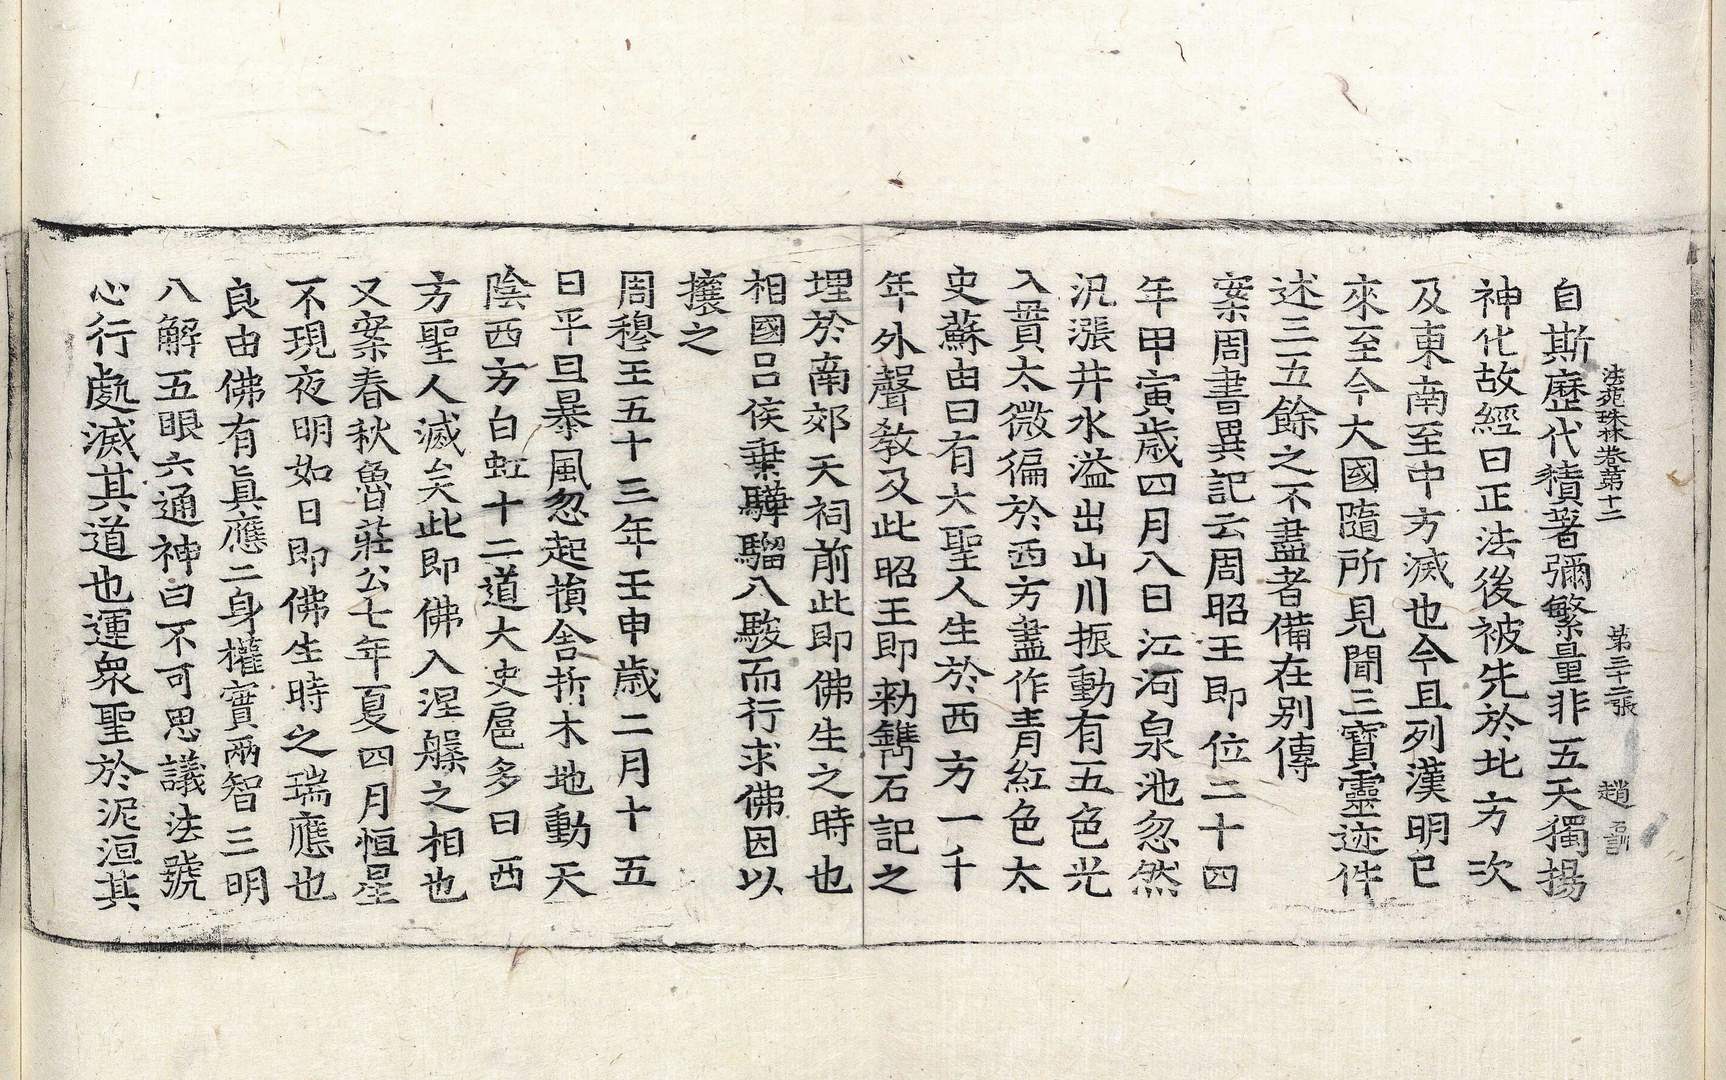 自斯歷代積著彌繁量非五天獨揚
法苑珠林卷第十二 第三十二張 趙
神化故經曰正法後被先於北方次
及東南至中方滅也今且列漢明已
來至今大國隨所見聞三寶靈迹件
述三五餘之不盡者備在別傳
案周書異記云周昭王即位二十四
年甲寅歲四月八日江河泉池忽然
汎漲井水溢出山川振動有五色光
入貫太微徧於西方盡作青紅色太
史蘇由曰有大聖人生於西方一千
年外聲教及此昭王即勑鐫石記之
埋於南郊天祠前此即佛生之時也
相國呂侯乗驊騮八駿而行求佛因以
攘之
周穆王五十三年壬申歲二月十五
日平旦暴風忽起損舍折木地動天
陰西方白虹十二道大史扈多曰西
方聖人滅矣此即佛入涅槃之相也
又案春秋魯莊公七年夏四月恒星
不現夜明如日即佛生時之瑞應也
良由佛有眞應二身權實兩智三明
八解五眼六通神曰不可思議法號
心行處滅其道也運衆聖於泥洹其